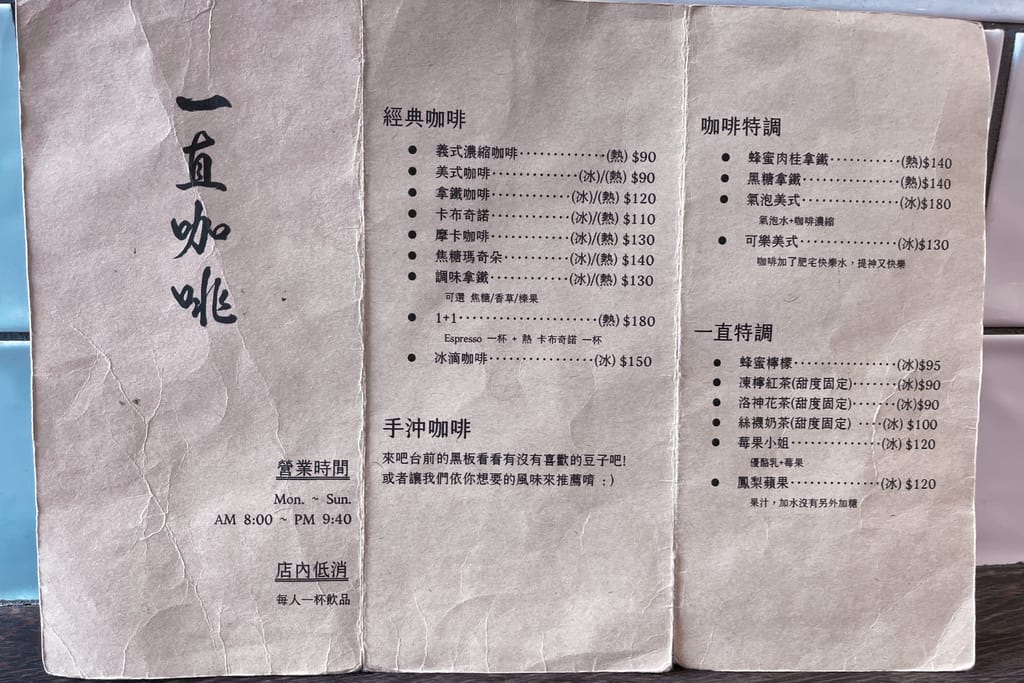 一直咖啡
營業時間
Mon. ~ Sun.
AM 8:00 ~ PM 9:40
店內低消
每人一杯飲品
經典咖啡
● 義式濃縮咖啡·············(熱) $90
● 美式咖啡·············(冰)/(熱) $90
● 拿鐵咖啡············(冰)/(熱) $120
● 卡布奇諾············(冰)/(熱) $110
● 摩卡咖啡············(冰)/(熱) $130
● 焦糖瑪奇朵··········(冰)/(熱) $140
● 調味拿鐵············(冰)/(熱) $130
可選 焦糖/香草/榛果
● 1+1·····················(熱) $180
Espresso 一杯 + 熱 卡布奇諾 一杯
● 冰滴咖啡················(冰) $150
手沖咖啡
來吧台前的黑板看看有沒有喜歡的豆子吧!
或者讓我們依你想要的風味來推薦唷 : )
咖啡特調
● 蜂蜜肉桂拿鐵···········(熱)$140
● 黑糖拿鐵···············(熱)$140
● 氣泡美式···············(冰)$180
氣泡水+咖啡濃縮
● 可樂美式···············(冰)$130
咖啡加了肥宅快樂水，提神又快樂
一直特調
● 蜂蜜檸檬················(冰)$95
● 凍檸紅茶(甜度固定)·······(冰)$90
● 洛神花茶(甜度固定)·······(冰)$90
● 絲襪奶茶(甜度固定) ····(冰) $100
● 莓果小姐···············(冰) $120
優酪乳+莓果
● 鳳梨蘋果···············(冰) $120
果汁，加水沒有另外加糖